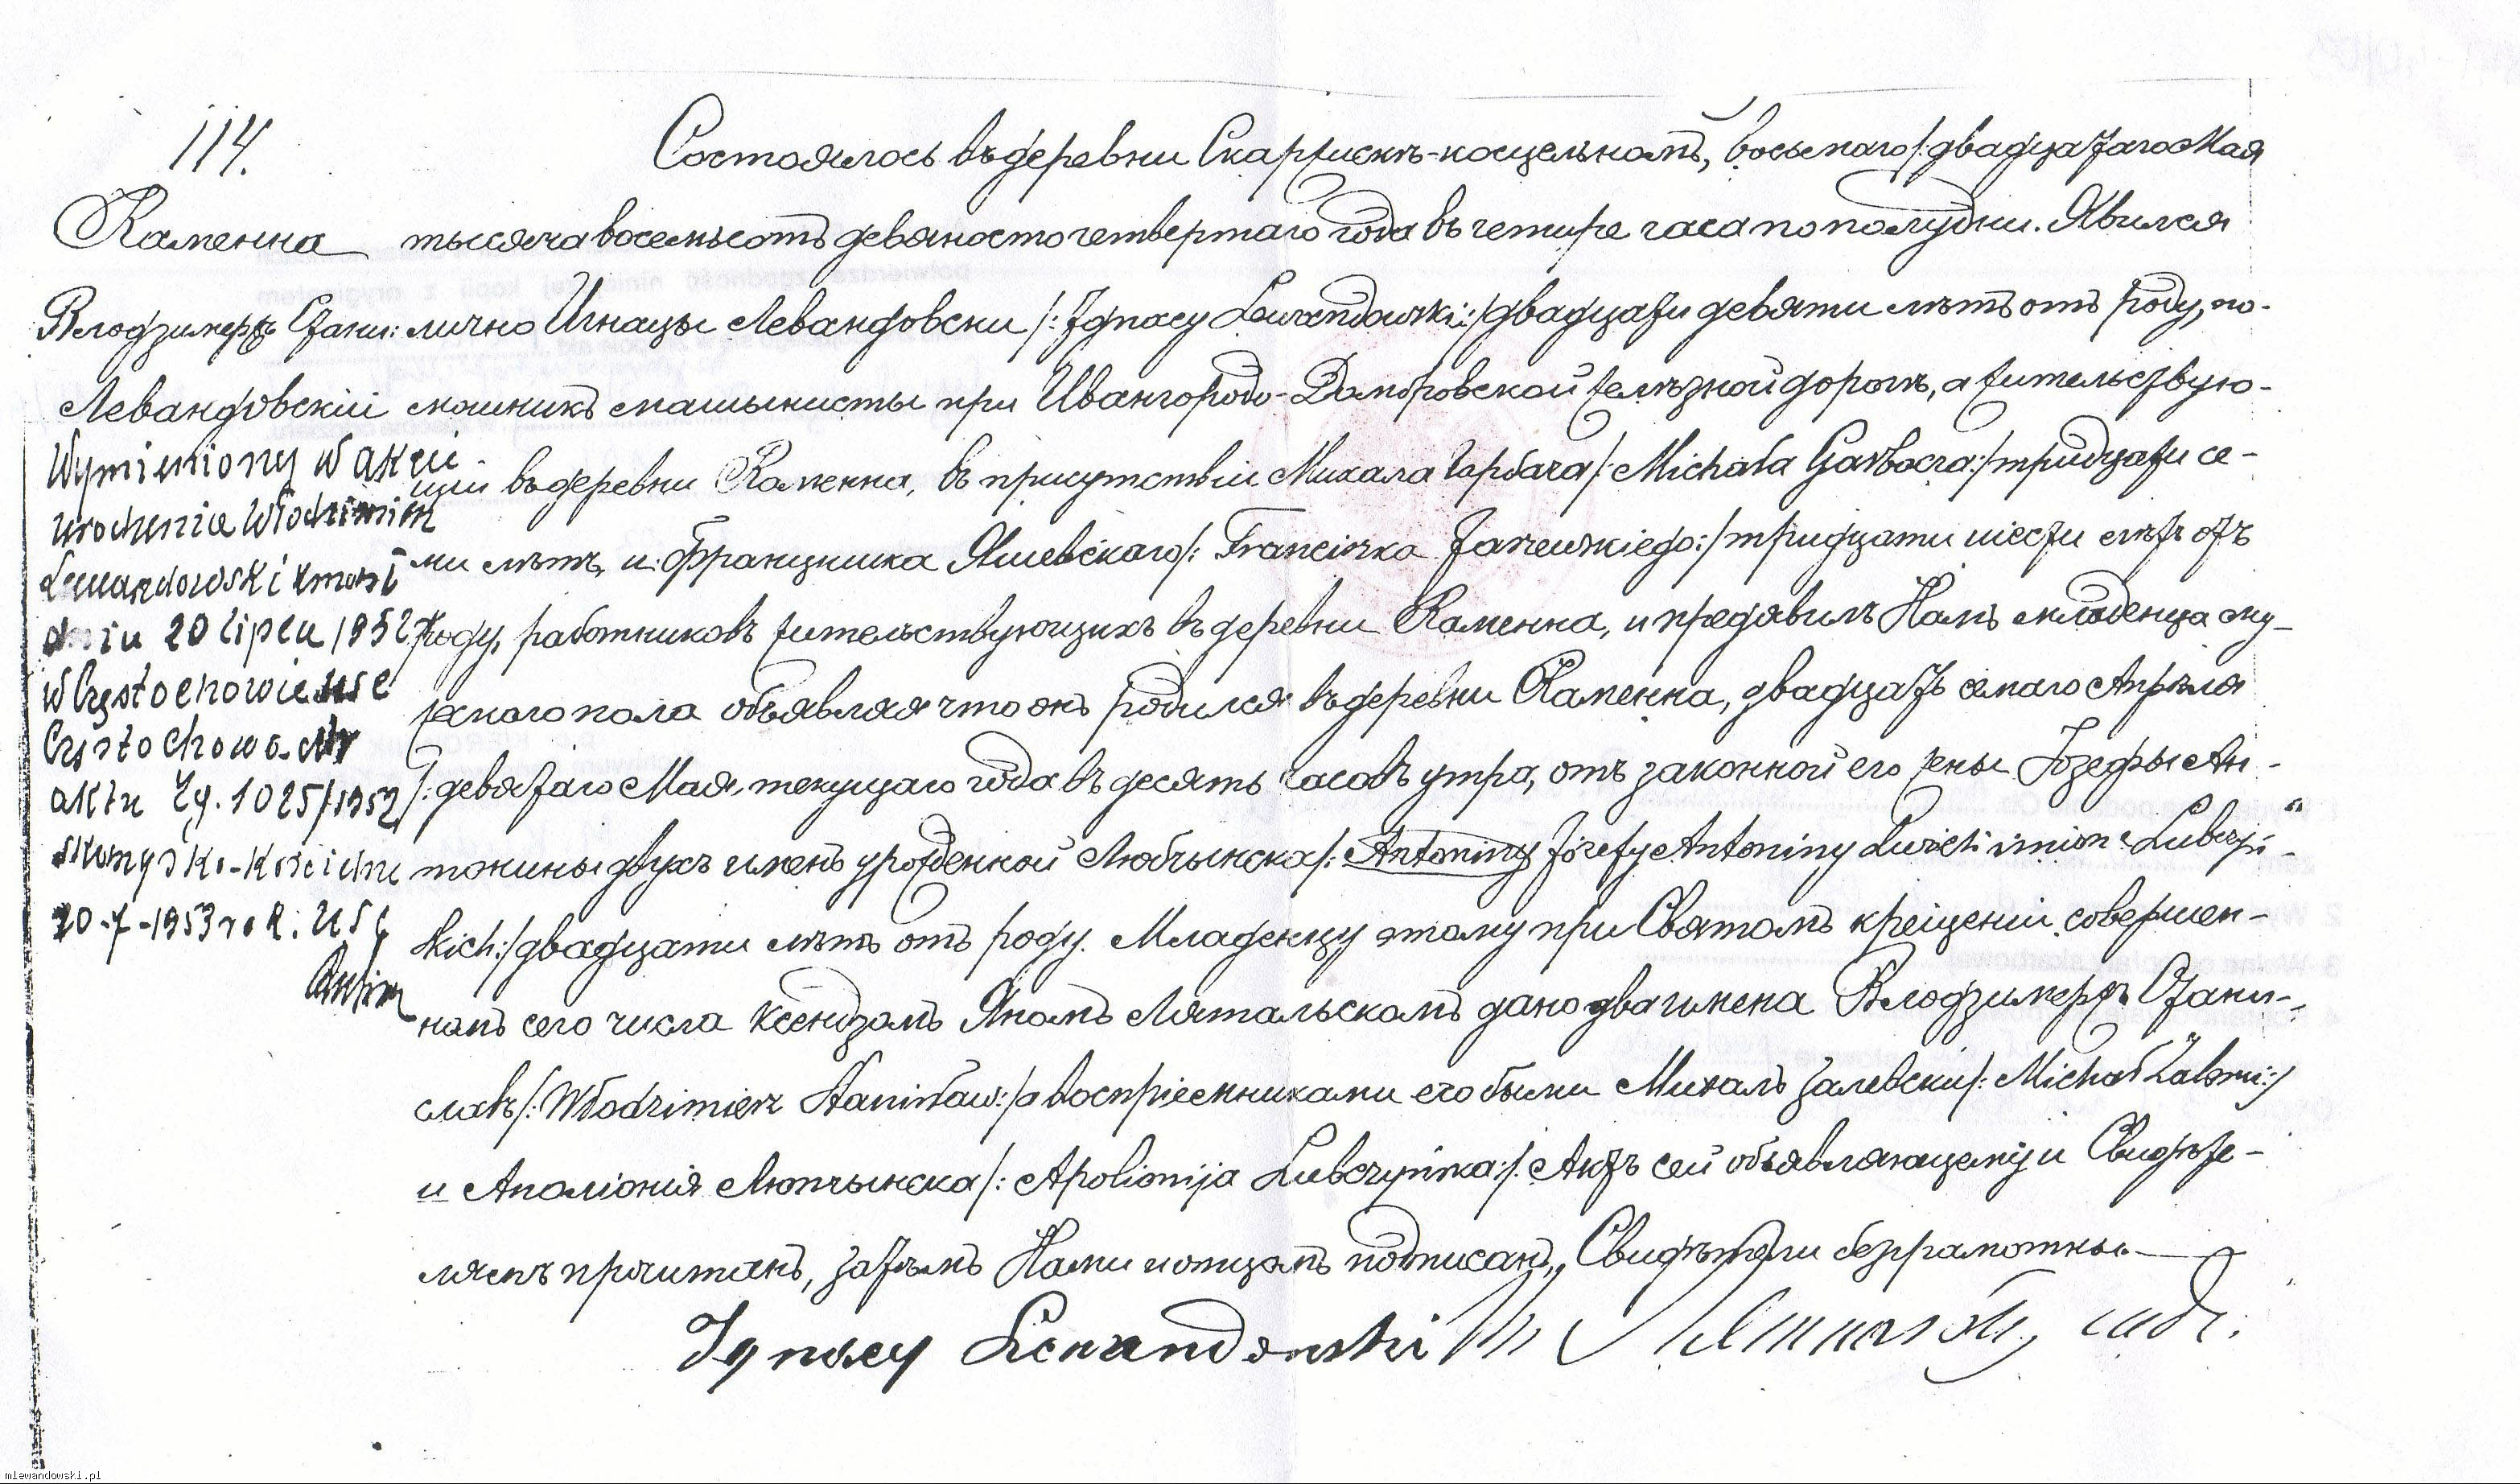 114.
Каменна
Влодзимеръ Стани:
Левандовскій
Wymieniony w akcie
urodzenia Włodzimierz
Lewandowski zmarł
dniu 20 lipca 1952 r
w Częstochowie USC
Częstochowa Nr
aktu Zg. 1025/1952
Skarżysko-Kościelne
20-7-1953 rok. USC
Состоялось въ деревни Скаржискѣ-косцельномъ, восьмаго /: двадцатаго Мая
тысяча восемьсотъ девяносто четвертаго года въ четыре часа по полудни. Явился
лично Игнацы Левандовски /: Ignacy Lewandowski :/ двадцати девяти лѣтъ отъ роду, по-
мошникъ машынисты при Ивангородо-Домбровской желѣзной дорогѣ, а жительствую-
щій въ деревни Каменна, въ присутствіи Михала Гарбача /: Michała Garbacza :/ тридцати се-
ми лѣтъ, и Францишка Яшевскаго /: Franciszka Jaszewskiego :/ тридцати шести лѣтъ отъ
роду, работниковъ жительствующихъ въ деревни Каменна, и предявилъ Намъ младенца му-
жескаго пола объявляя что онъ родился въ деревни Каменна, двадцать седмаго Апрѣля
/: девятаго Мая, текущаго года въ десять часовъ утра, отъ законной его жены Іозефы Ан-
тонины двухъ именъ урожденной Любчынска /: Antoniny Józefy Antoniny dwóch imion z Lubczyń-
skich :/ двадцати лѣтъ отъ роду. Младенцу этому при Святомъ крещеніи, совершен-
номъ сего числа Ксендзомъ Яномъ Лятальскомъ дано два имена Влодзимеръ Стани-
славъ /: Włodzimierz Stanisław :/ а воспріемниками его были Михалъ Залевски /: Michał Zalewski :/
и Аполіонія Любчынска /: Apolionija Lubczyńska :/. Актъ сей объявляющему и Свидѣте-
лямъ прочитанъ, затѣмъ Нами и отцомъ подписанъ, Свидѣтели безграмотны.
Ignacy Lewandowski